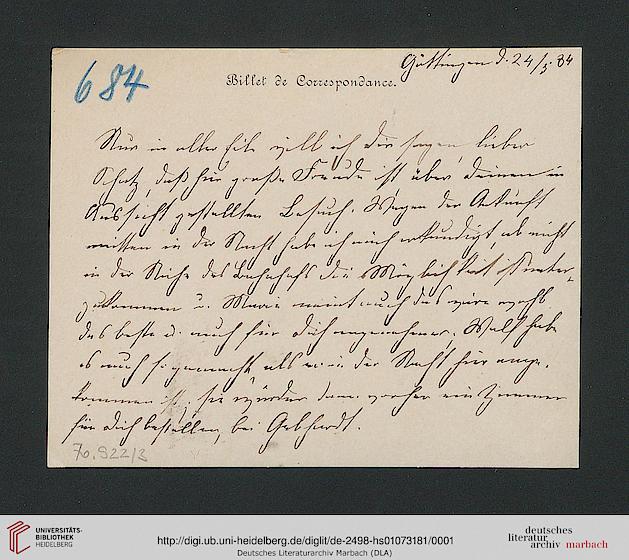 684
Göttingen d. 24/5 84
Billet de Correspondance.
Nur in aller Eile will ich Dir sagen, lieber
Schatz, daß hier große Freude ist über Deinen in
Aussicht gestellten Besuch. Wegen der Ankunft
mitten in der Nacht habe ich mich erkundigt, ob nicht
in der Nähe des Bahnhofs die Möglichkeit ist unter-
zukommen u. Marie meint auch das wäre wohl
das beste u. auch für Dich angenehmer. Wolf habe
es auch so gemacht als er in der Nacht hier ange-
kommen ist, sie würden dann vorher ein Zimmer
für Dich bestellen, bei Gebhardt.
70.922/3
UNIVERSITÄTS-
BIBLIOTHEK
HEIDELBERG
http://digi.ub.uni-heidelberg.de/diglit/de-2498-hs01073181/0001
Deutsches Literaturarchiv Marbach (DLA)
deutsches
literatur
archiv marbach